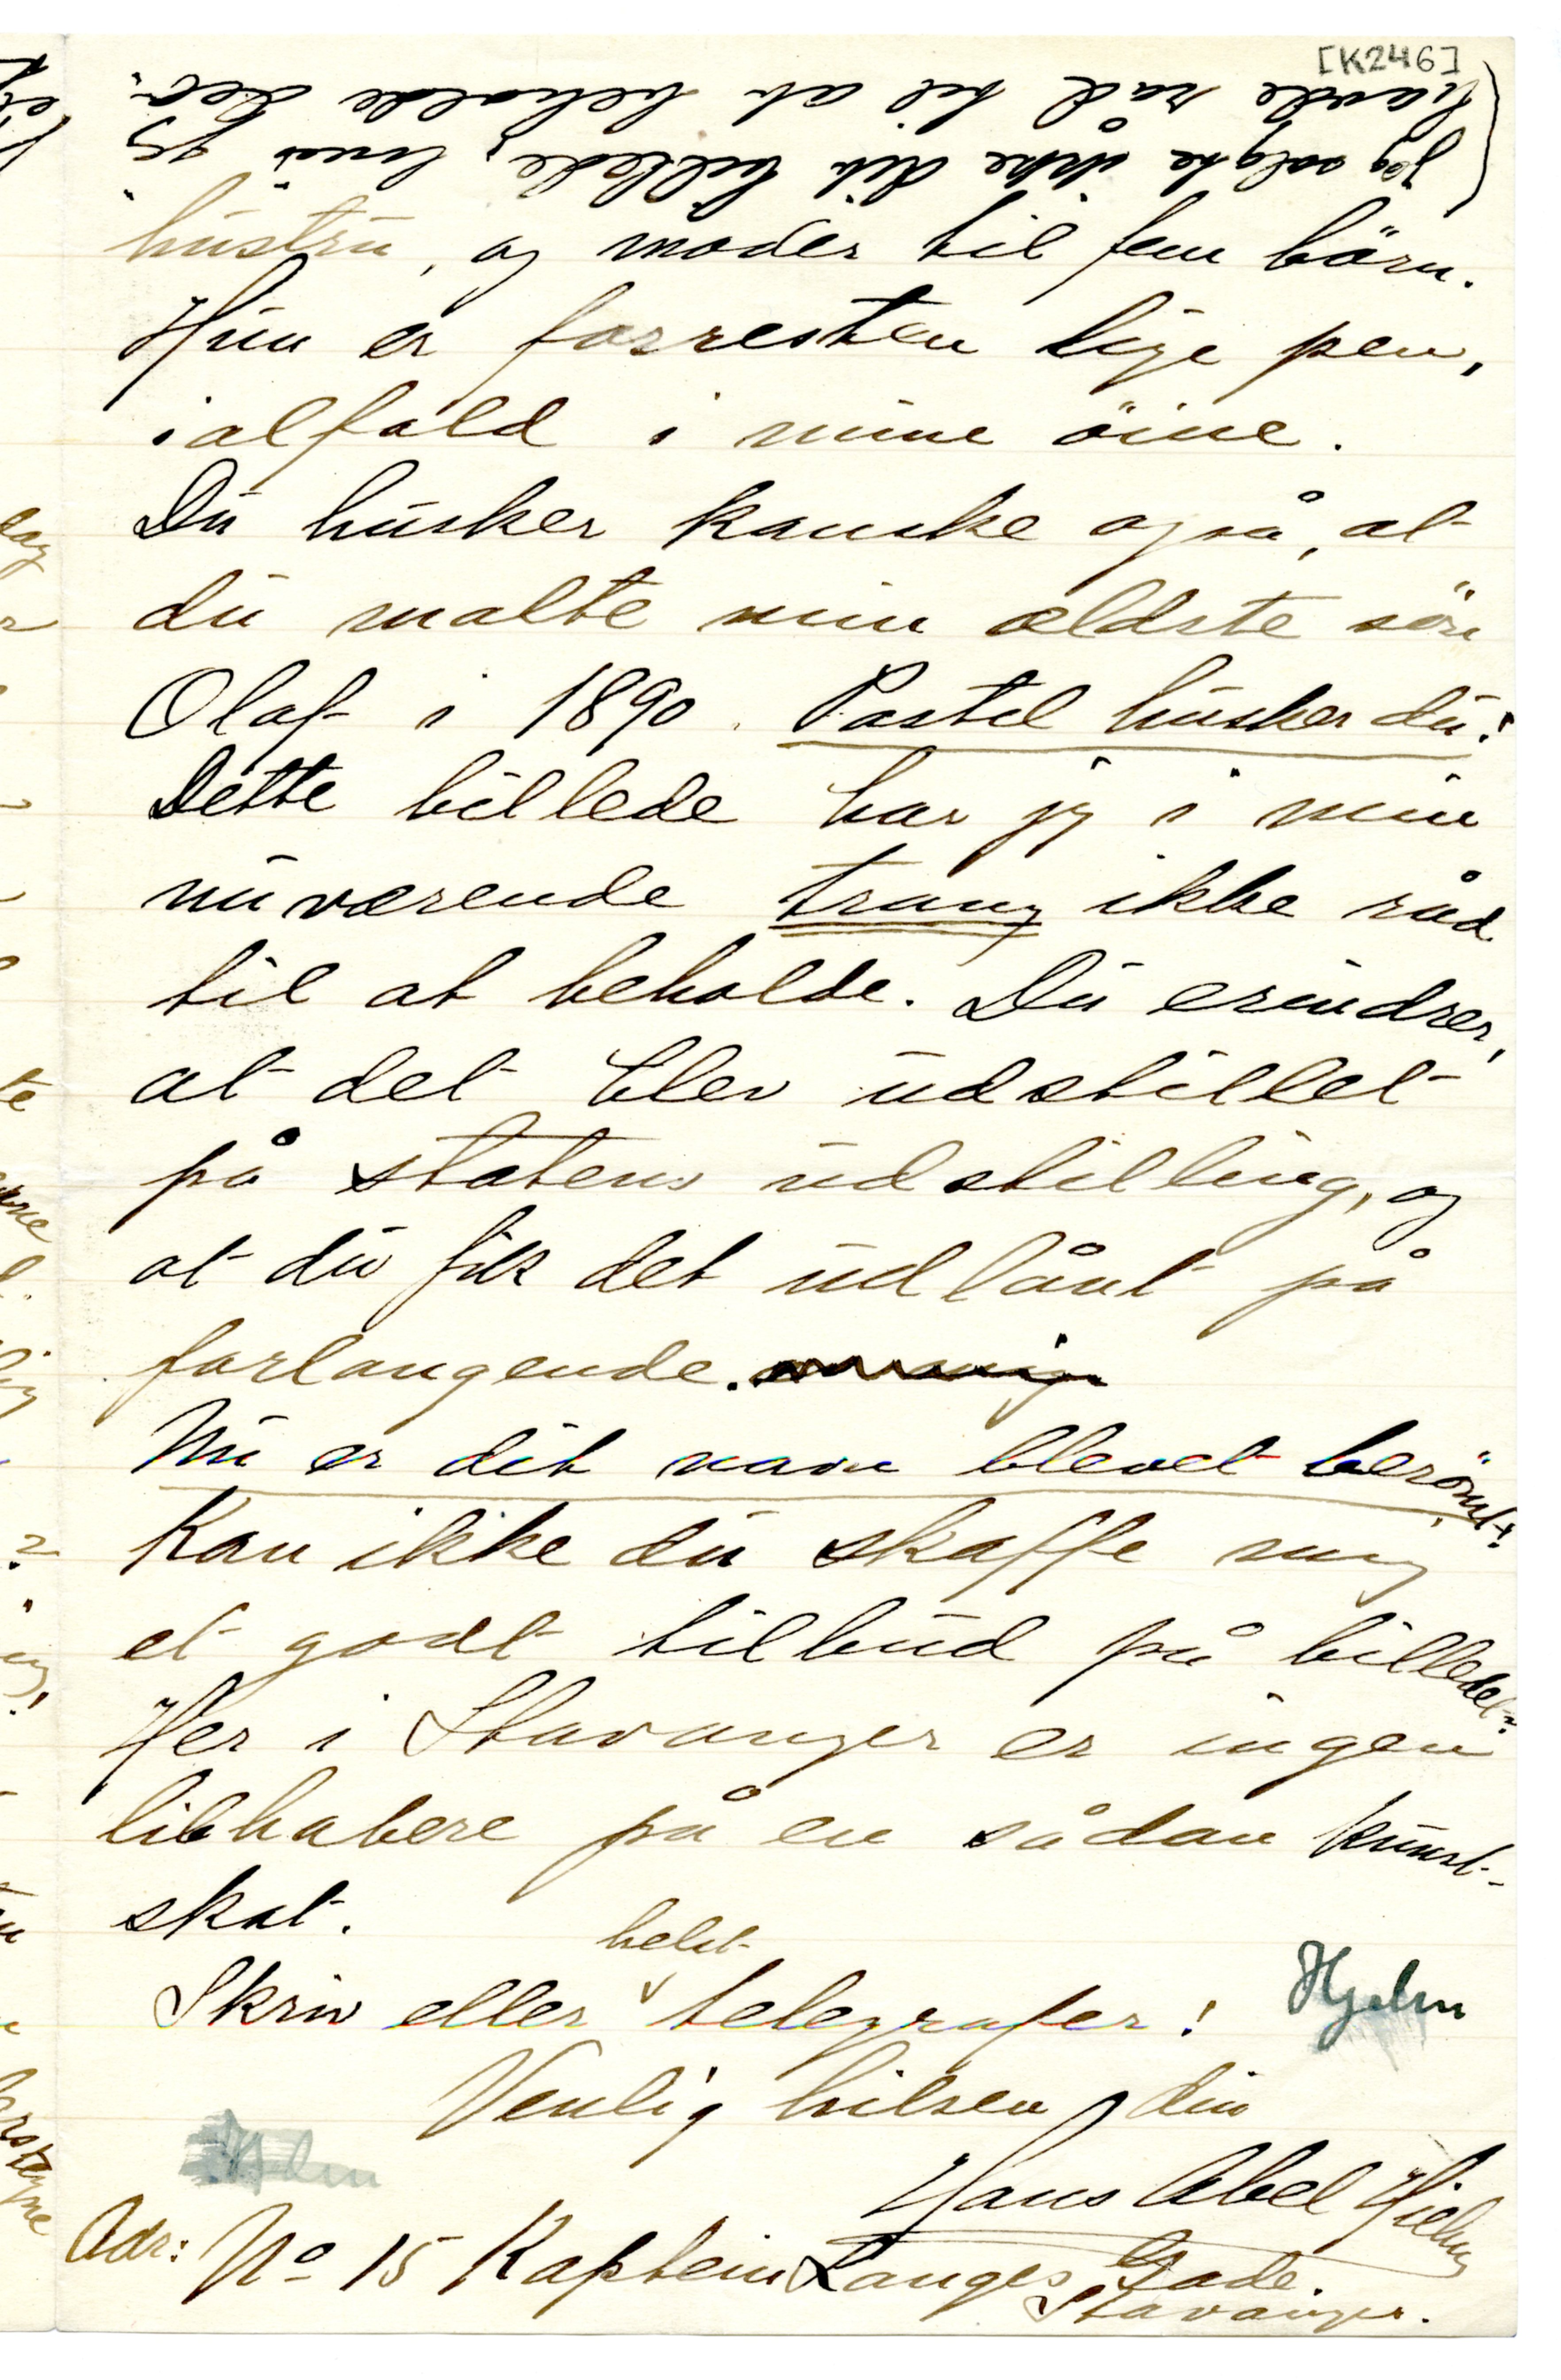 [K246]
jeg solgte ikke dit billede, hvis jeg
havde råd til at beholde det.
hustru, og moder til fem börn.
Hun er forresten lige pen,
ialfald i mine öine.
Du husker kanske også, at
du malte min ældste sön
Olaf i 1890. Pastel husker du!
Dette billede har jeg i min
nuværende trang ikke råd
til at beholde. Du erindrer,
at det blev udstillet
på statens udstilling, og
at du fik det udlånt på
forlangende.
Nu er dit navn blevet berömt!
Kan ikke du skaffe mig
et godt tilbud på billedet?
Her i Stavanger er ingen
libhabere på en sådan kunst-
skat.
helst
Skriv eller telegrafer!
Hjelm
Venlig hilsen din
Hans Abel Hielm
Adr: No 15 Kaptein Langes Gade.
Stavanger.